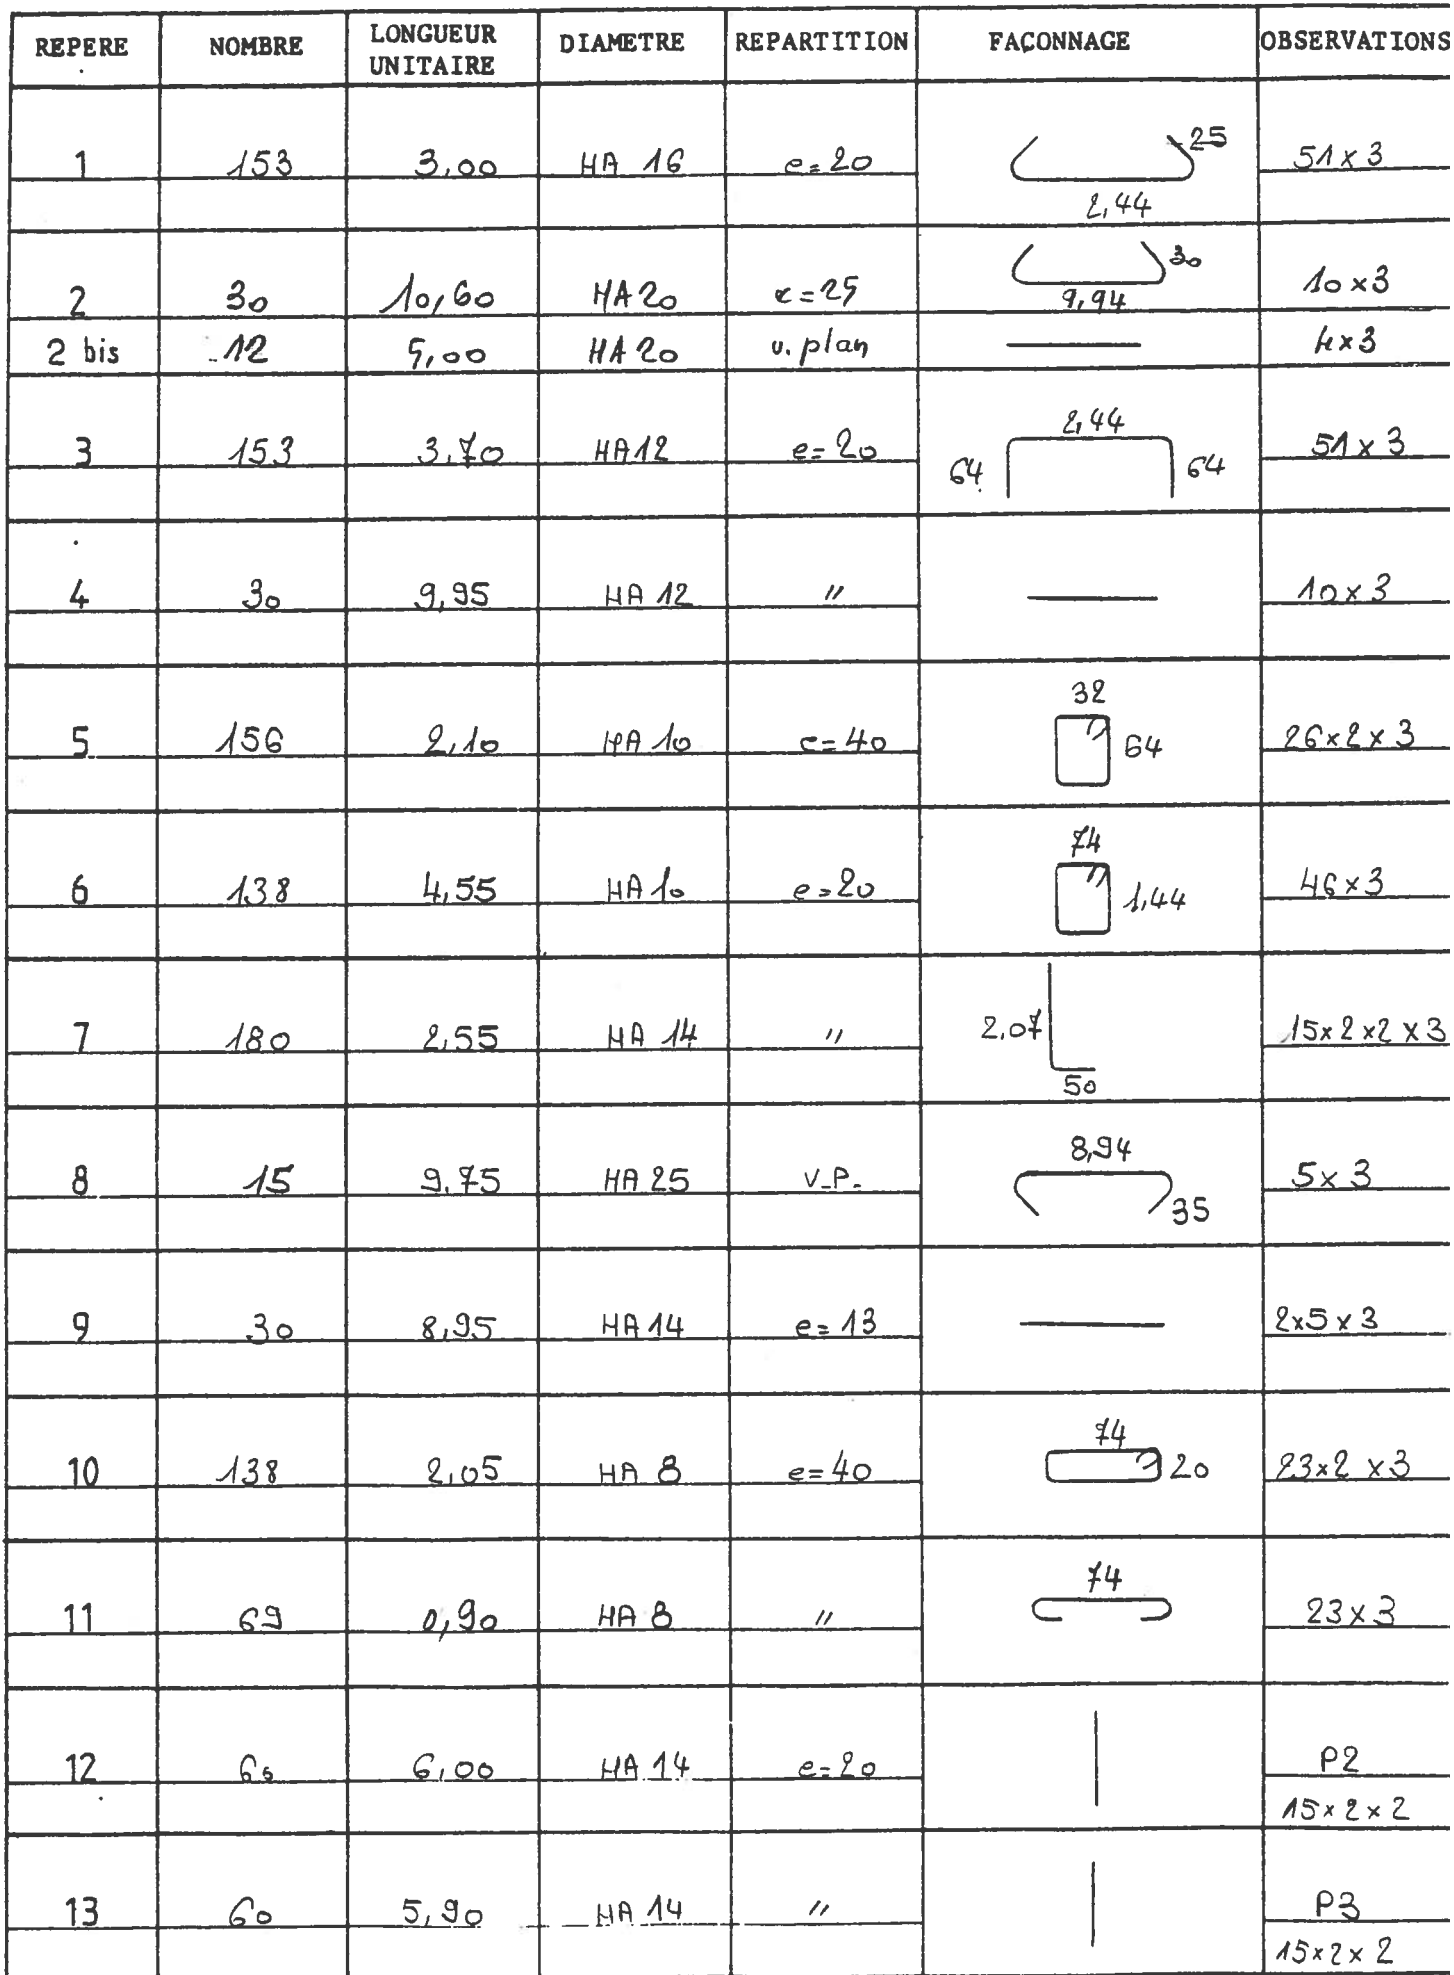 REPERE NOMBRE LONGUEUR UNITAIRE DIAMETRE REPARTITION FAÇONNAGE OBSERVATIONS
1 153 3,00 HA 16 e=20 25 2,44 51x3
2 30 10,60 HA 20 e=25 30 9,94 10x3
2 bis 12 5,00 HA 20 v. plan 4x3
3 153 3,70 HA 12 e=20 2,44 64 64 51x3
4 30 9,95 HA 12 " 10x3
5 156 2,10 HA 10 e=40 32 64 26x2x3
6 138 4,55 HA 10 e=20 74 1,44 46x3
7 180 2,55 HA 14 " 2,07 50 15x2x2x3
8 15 9,75 HA 25 V.P. 8,94 35 5x3
9 30 8,95 HA 14 e=13 2x5x3
10 138 2,05 HA 8 e=40 74 20 23x2x3
11 69 0,90 HA 8 " 74 23x3
12 60 6,00 HA 14 e=20 P2
15x2x2
13 60 5,90 HA 14 " P3
15x2x2